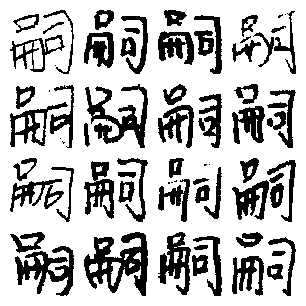 嗣嗣嗣嗣
嗣嗣嗣嗣
嗣嗣嗣嗣
嗣嗣嗣嗣